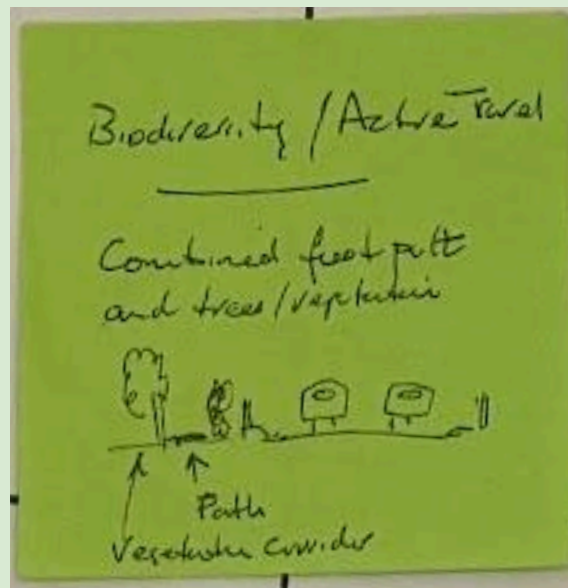 Biodiversity / Active Travel
Combined footpath
and trees/vegetation
Path
Vegetation Corridor